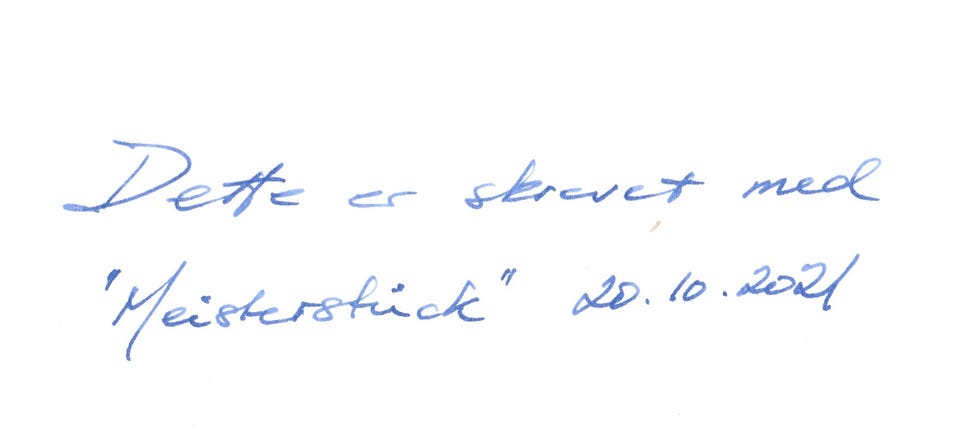 Dette er skrevet med
"Meisterstück" 20.10.2021